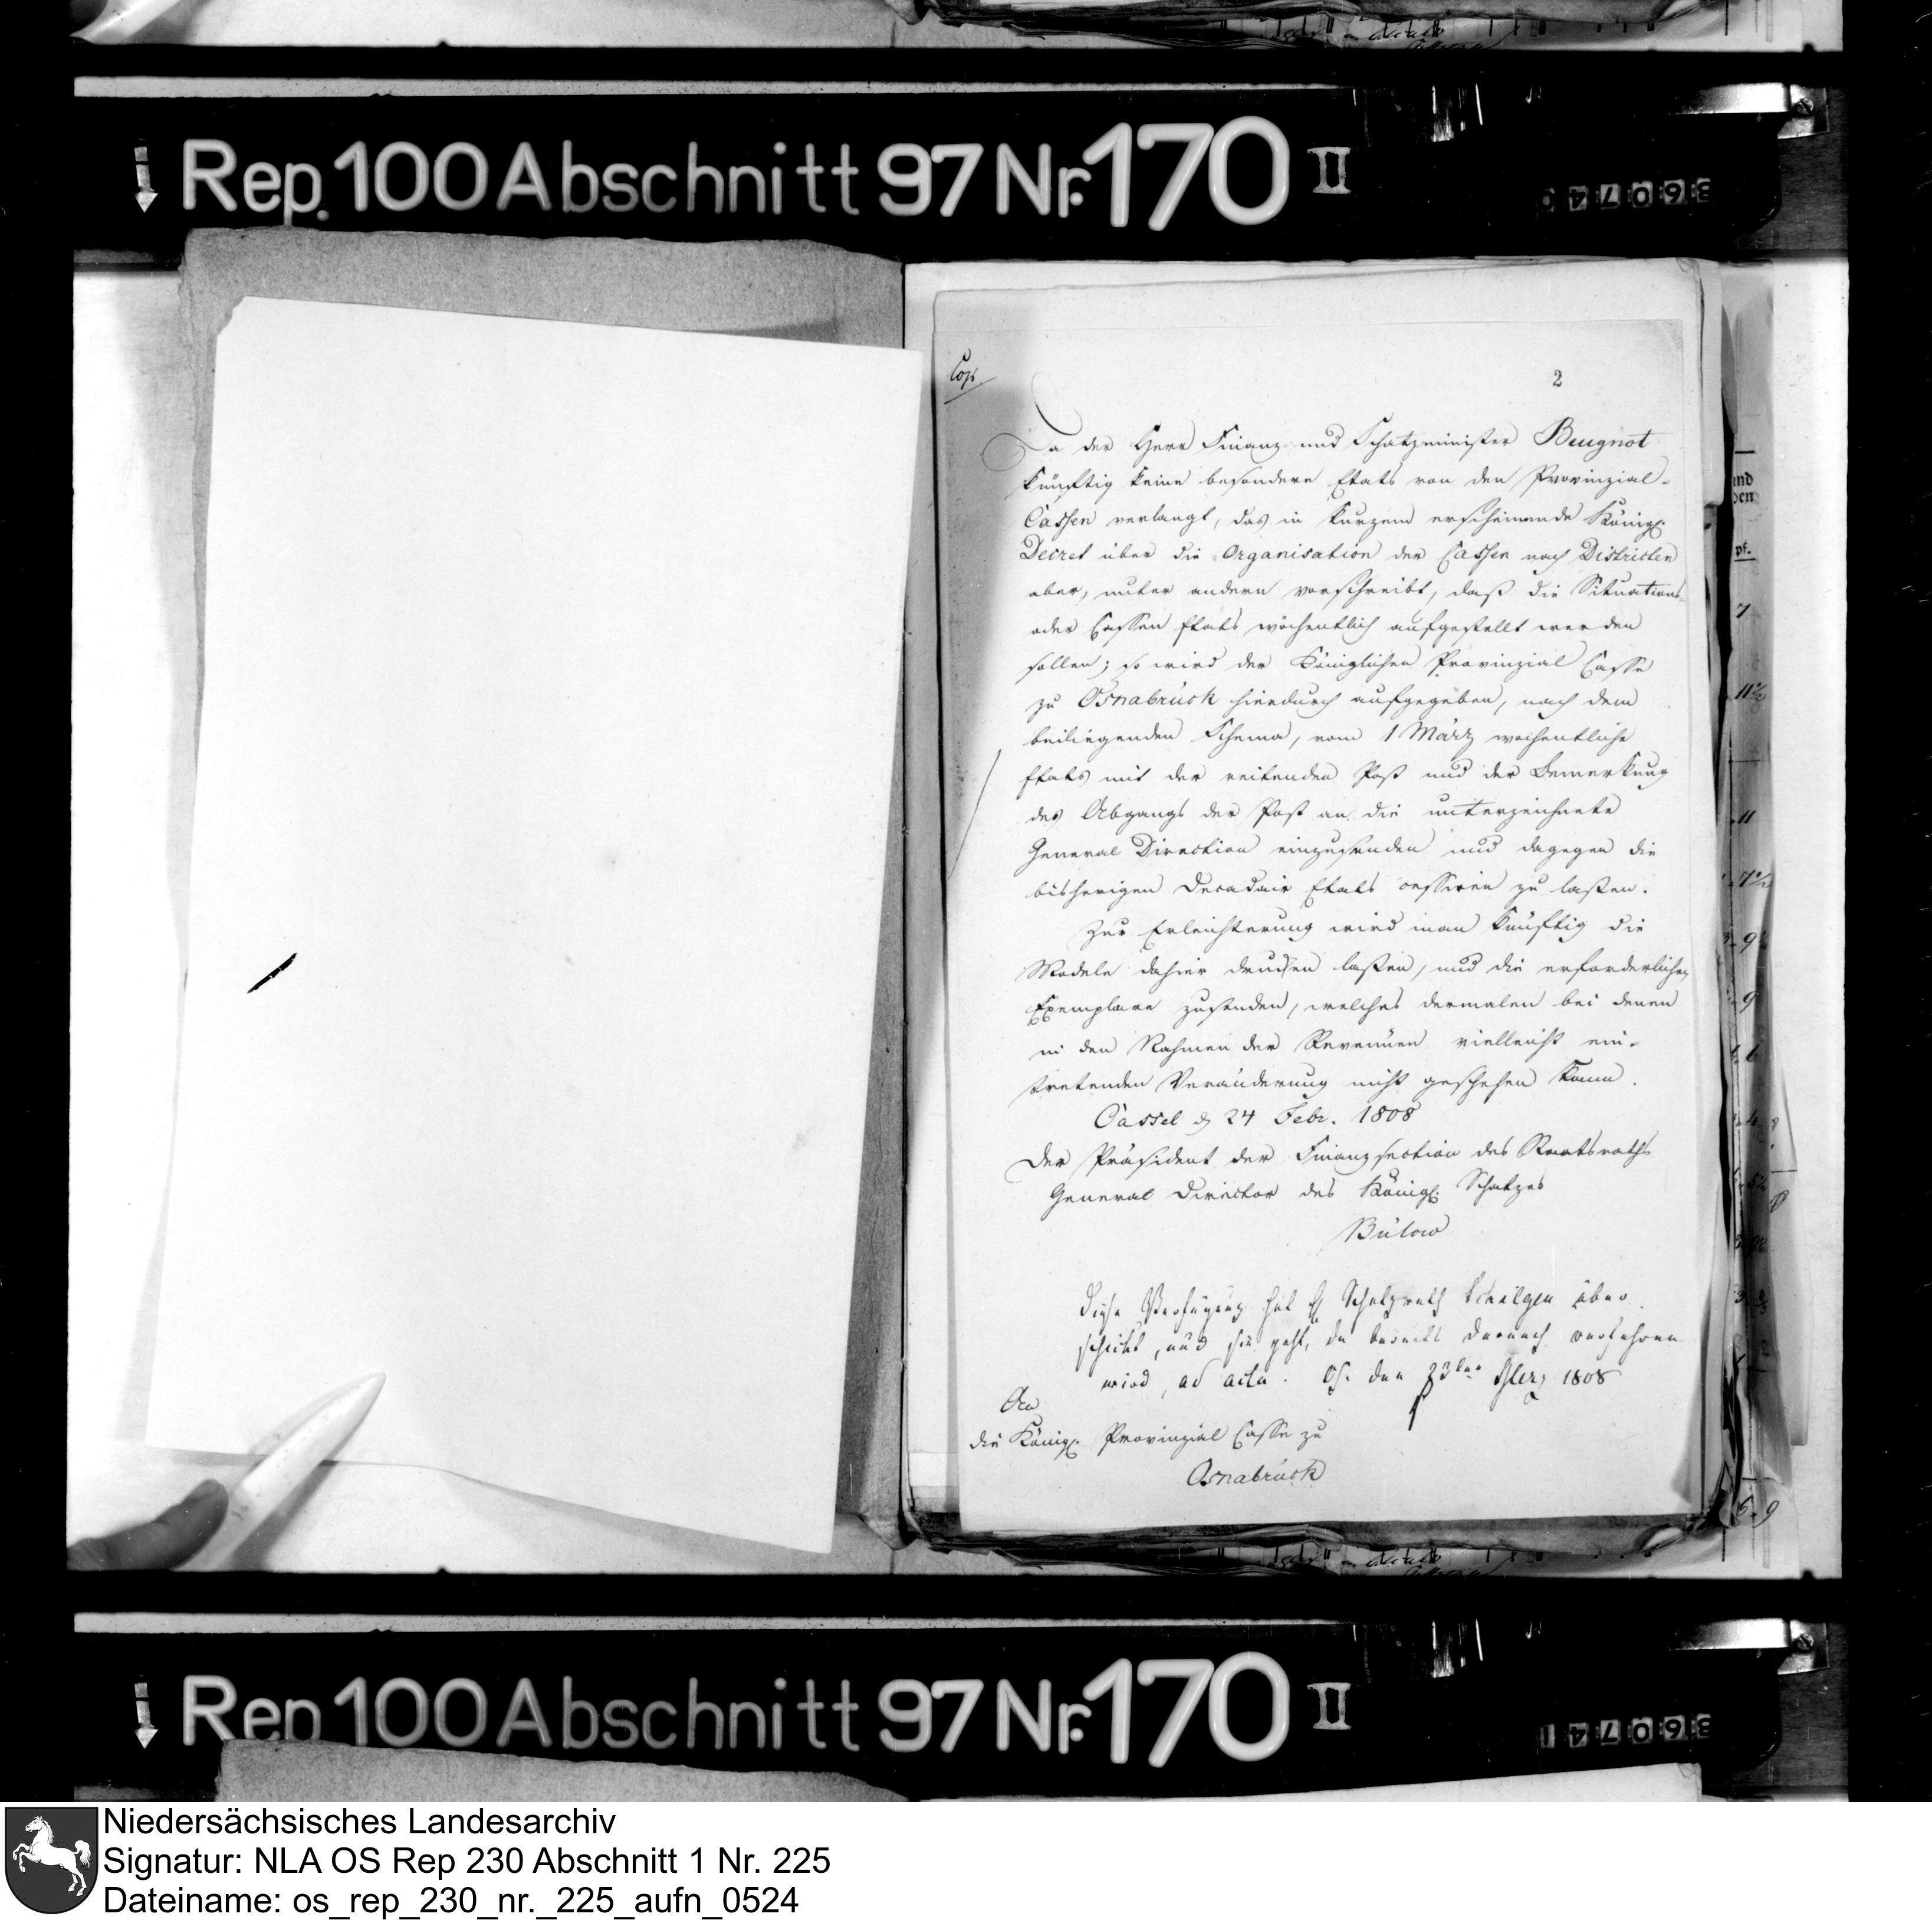 Rep. 100 Abschnitt 97 Nr. 170 II
360740
Cop.
2
Da der Herr Finanz- und Schatzminister Beugnot
künftig keine besondere Etats von den Provinzial-
Cassen verlangt, das in kurzem erscheinende Königl.
Decret über die Organisation der Cassen nach Districten
aber, unter andern vorschreibt, daß die Situations-
oder Cassen Etats wöchentlich aufgestellt werden
sollen; so wird der Königlichen Provinzial Casse
zu Osnabrück hierdurch aufgegeben, nach dem
beiliegenden Schema, vom 1 März wochentliche
Etats mit der reitenden Post und der Bemerkung
des Abgangs der Post an die unterzeichnete
General Direction einzusenden und dagegen die
bisherigen Decadair Etats cessiren zu laßen.
Zur Erleichterung wird man künftig die
Modele dahier drucken laßen, und die erforderlichen
Exemplare zusenden, welches dermalen bei denen
in den Nahmen der Revenüen vielleicht ein-
tretenden Veränderung nicht geschehen kann.
Cassel d 24 Febr. 1808
Der Präsident der Finanzsection des Staatsraths
General Director des Königl. Schatzes
Bülow
Diese Verfügung hat H Schatzrath über
schickt, und sie geht, da bereits darnach verfahren
wird, ad acta. Os. den 23ten Merz 1808
An
die Königl. Provinzial Casse zu
Osnabrück
Rep 100 Abschnitt 97 Nr. 170 II
360741
Niedersächsisches Landesarchiv
Signatur: NLA OS Rep 230 Abschnitt 1 Nr. 225
Dateiname: os_rep_230_nr._225_aufn_0524